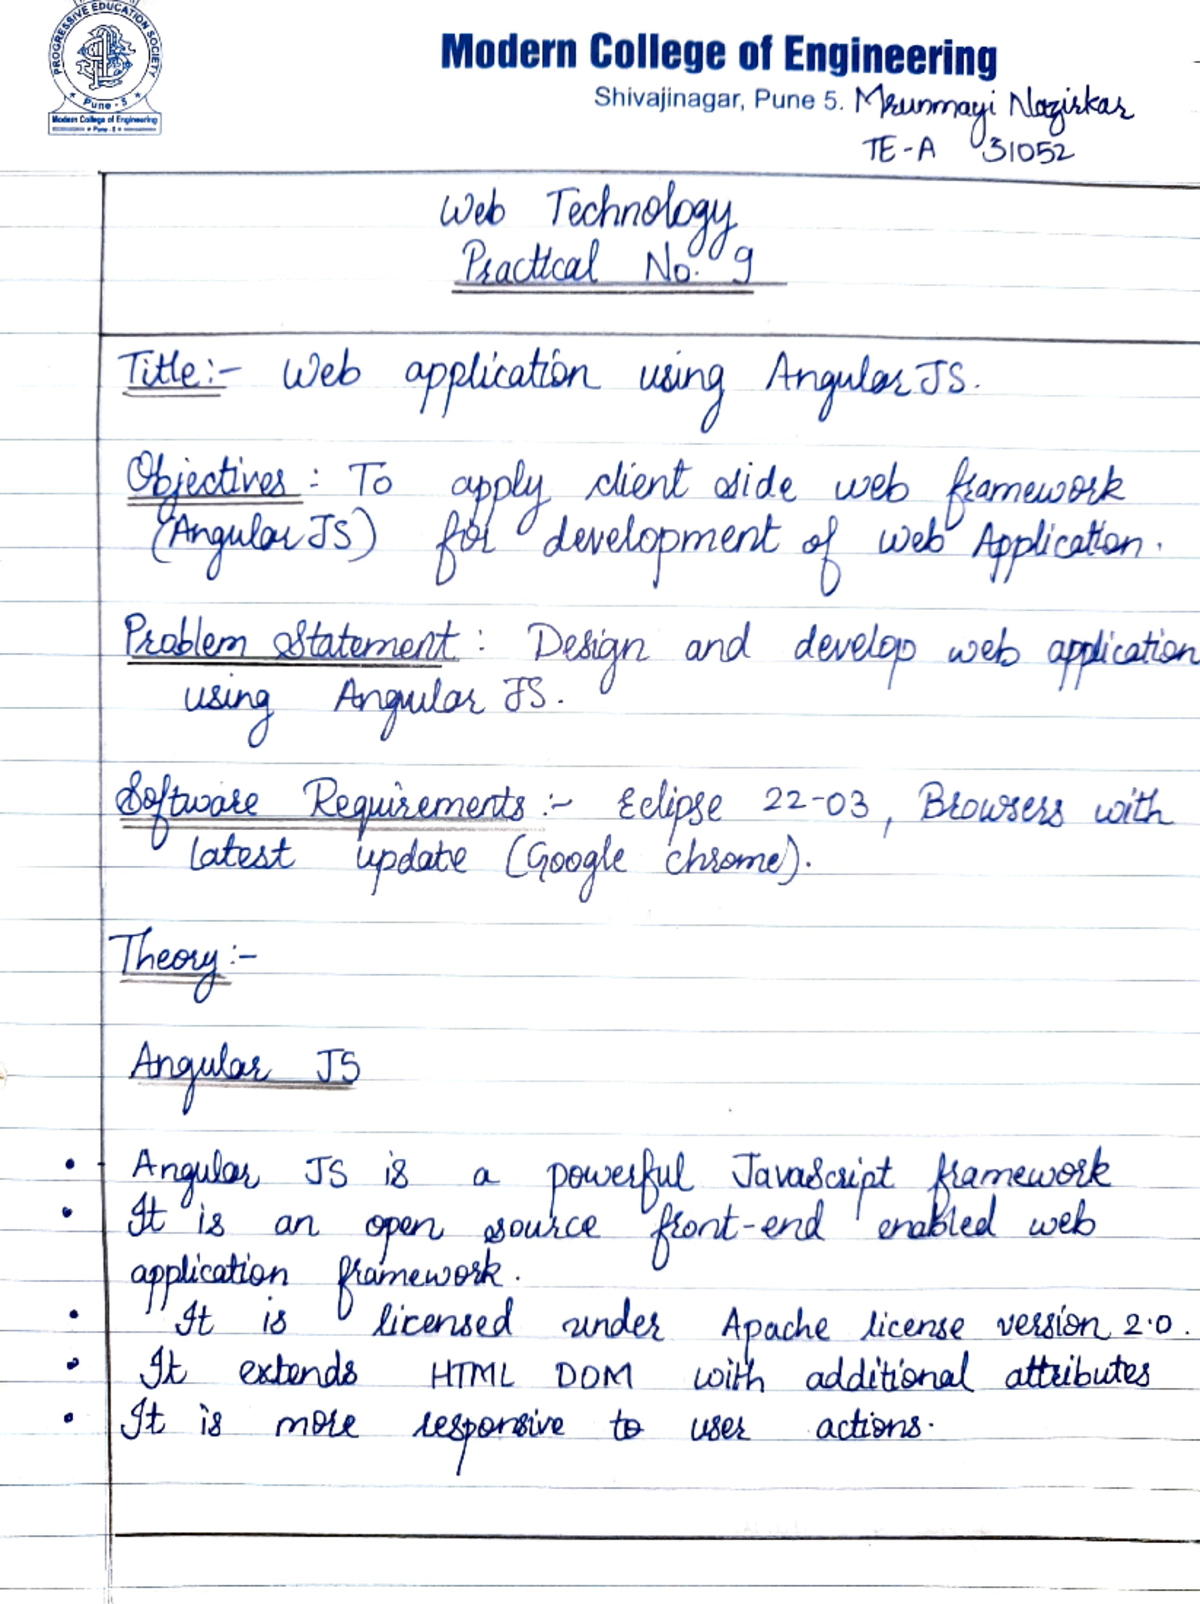 PROGRESSIVE EDUCATION SOCIETY
Pune - 5
Modern College of Engineering
Modern College of Engineering
Shivajinagar, Pune 5. Mrunmayi Nazirkar
TE-A 31052
Web Technology
Practical No. 9
Title:- Web application using Angular JS.
Objectives : To apply client side web framework
(Angular JS) for development of web Application.
Problem Statement : Design and develop web application
using Angular JS.
Software Requirements :- Eclipse 22-03, Browsers with
latest update (Google chrome).
Theory :-
Angular JS
• Angular JS is a powerful JavaScript framework
• It is an open source front-end enabled web
application framework.
• It is licensed under Apache license version 2.0.
• It extends HTML DOM with additional attributes
• It is more responsive to user actions.